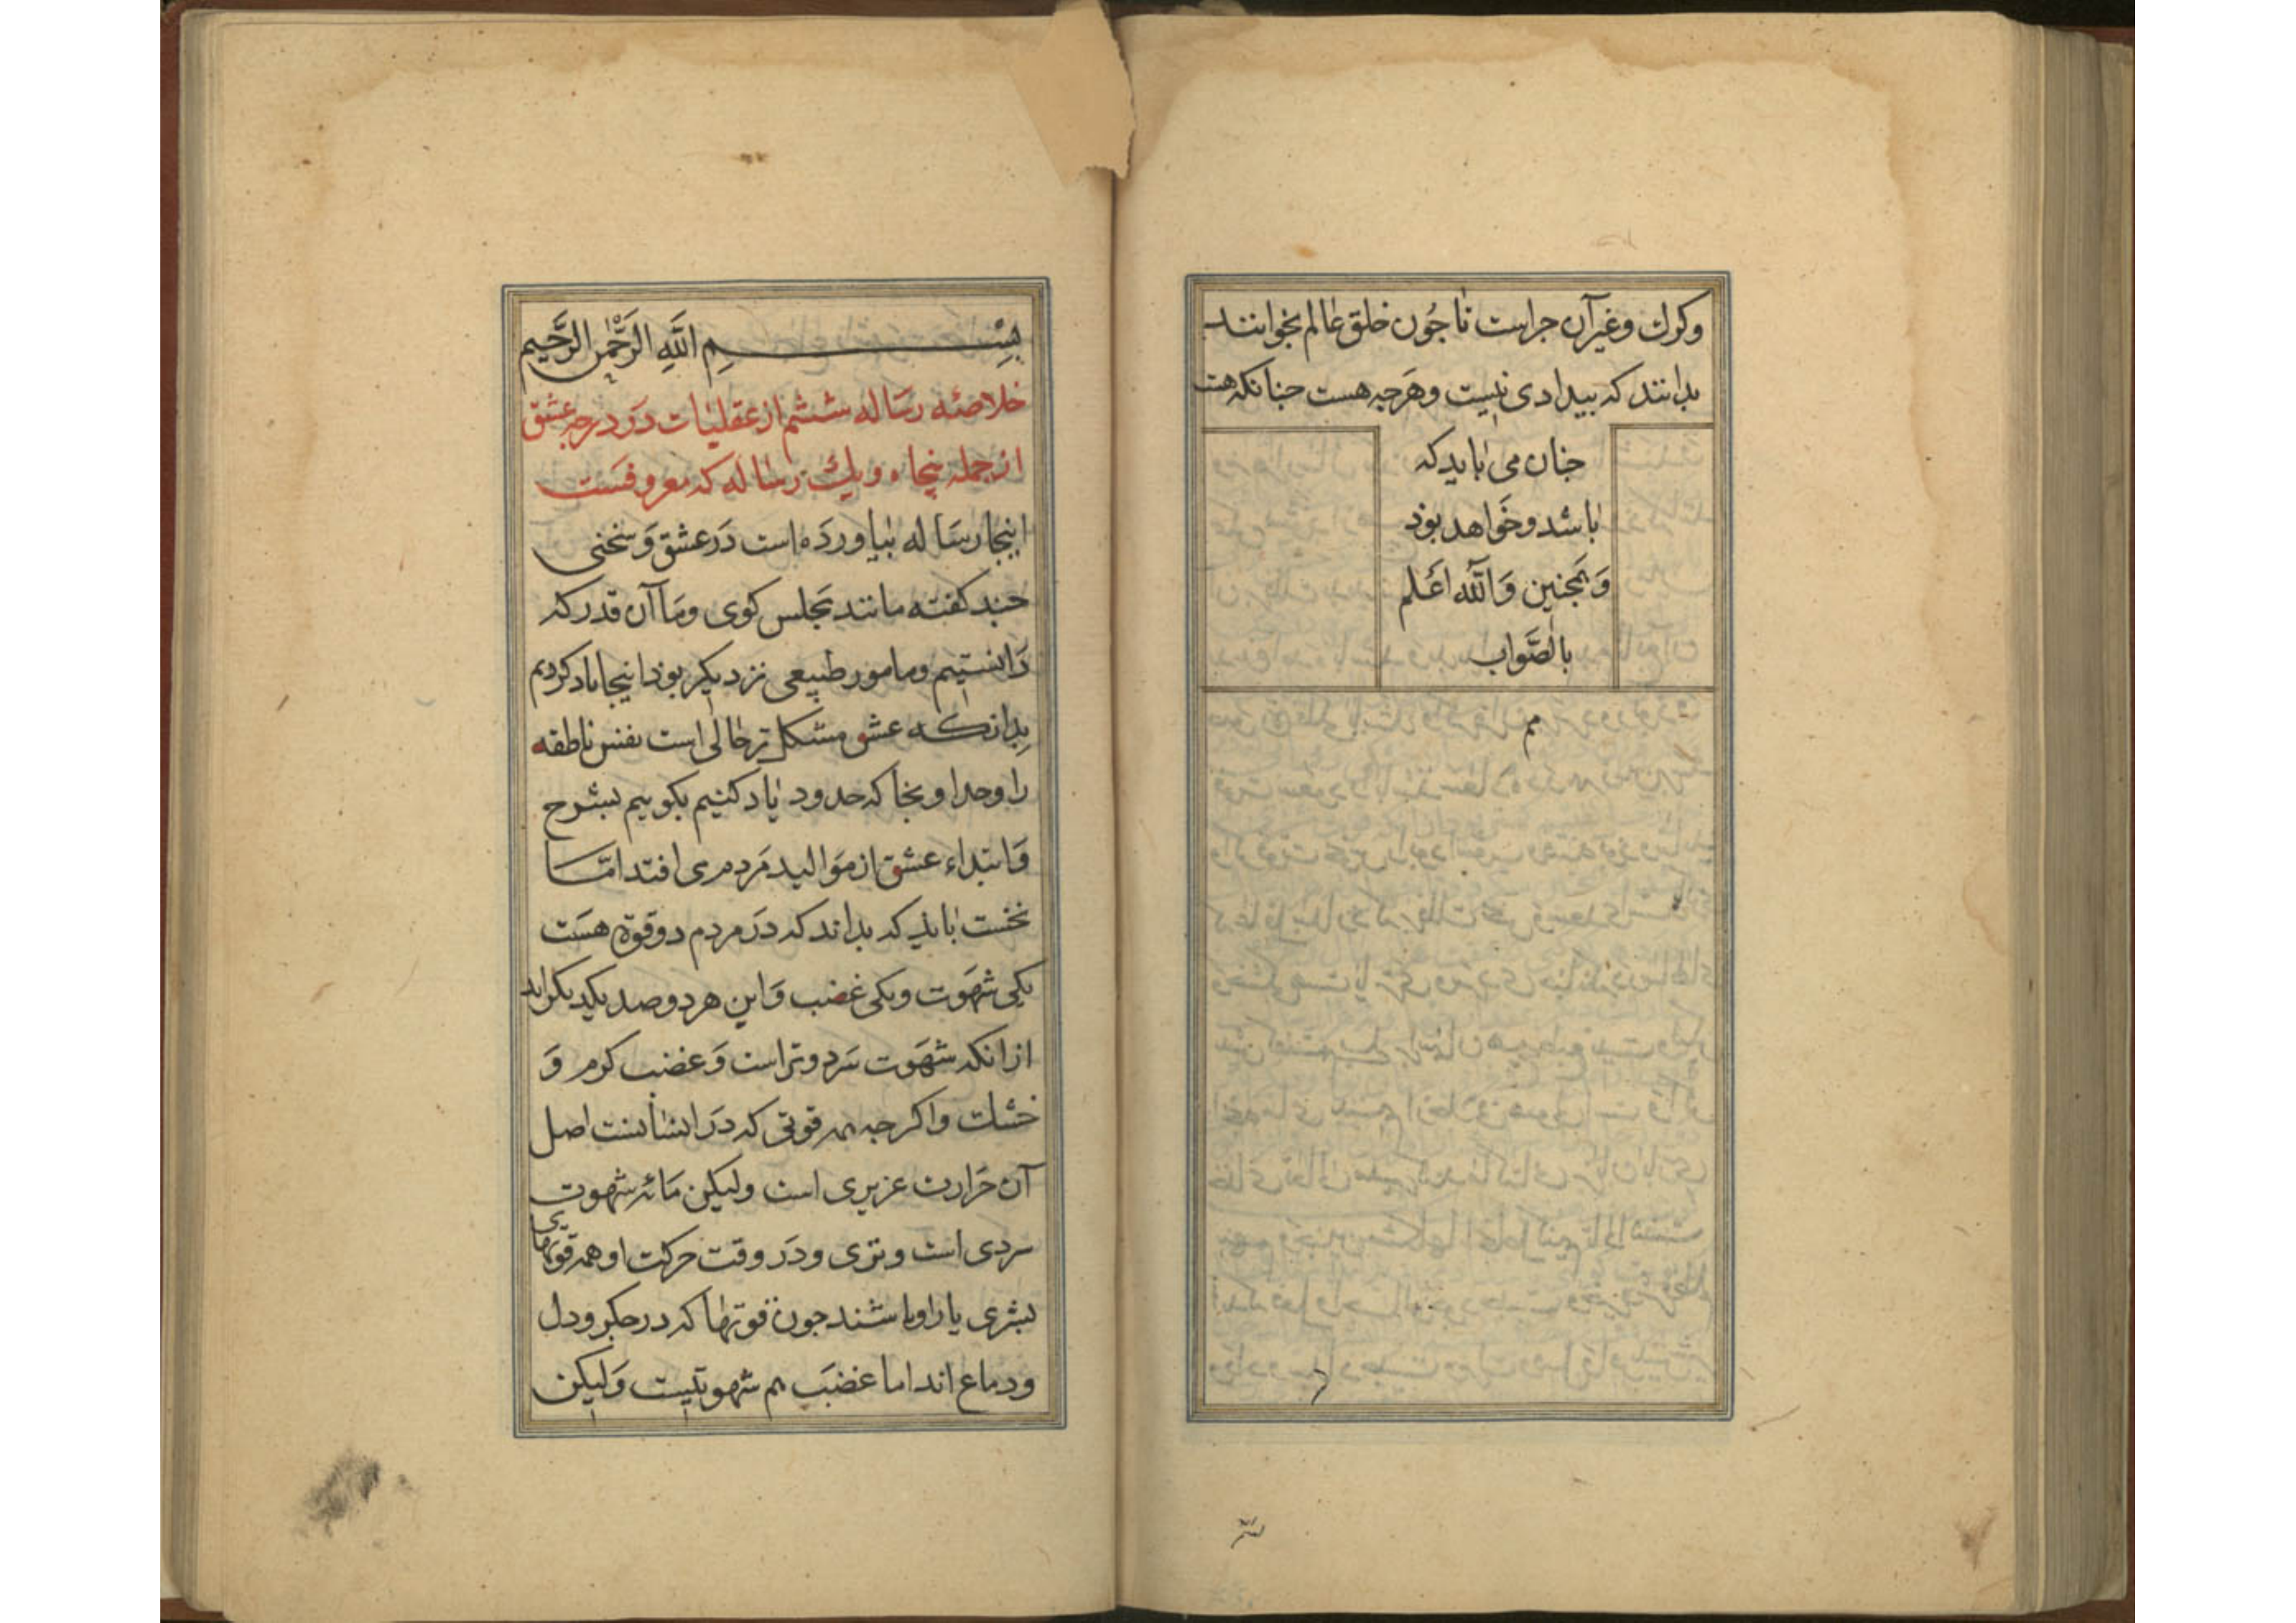 وکرك وغیرآن جراست تا جُون خلق عالم بخوانند
بدانند که بیدادی نیست وهَرجه هست جنانکه هست
جنان می باید که
باشد وخَواهد بوذ
وَهمجنین وَاللّه اعَلم
بالصَّواب
مم
بِسْمِ اللَّهِ الرَّحْمٰنِ الرَّحَیمِ
خلاصهٔ رسَاله ششم از عقلیات دَر درجهِ عشق
از جمله پنجاه ویك رسَاله که معروفست
اینجا رسَاله بیاوردَه است دَر عشق وَ سخنی
جند کفته مانند مجلس کوی ومَا آن قدر که
دَانستیم وما مور طبیعی نزدیکر بوذ اینجا یاد کردیم
بدانکه عشق مشکل تر حالی است نفس ناطقه
را وحد او بخا که حدود یاد کنیم بکوییم بشرح
وَابتداء عشق از موَالید مَردم می افتد امّا
نخست بایذ که بداند که دَر مردم دو قوة هسَت
یکی شهَوت ویکی غضب وَاین هر دو ضد یکدیکراند
از انکه شهَوت سَرد وتر است وَغضب کرم وَ
خشك واکرجه همه قوتی که دَر انسانست اصل
آن حَرارت عزیری است ولیکن مَائه شهوت
سردی است وتری ودَر وقت حرکت او همه قوتهای
بشری یار او باشند جون قوتها که در جکر ودل
ودماغ اند اما غضبَ هم شهوتیست وَلیکن